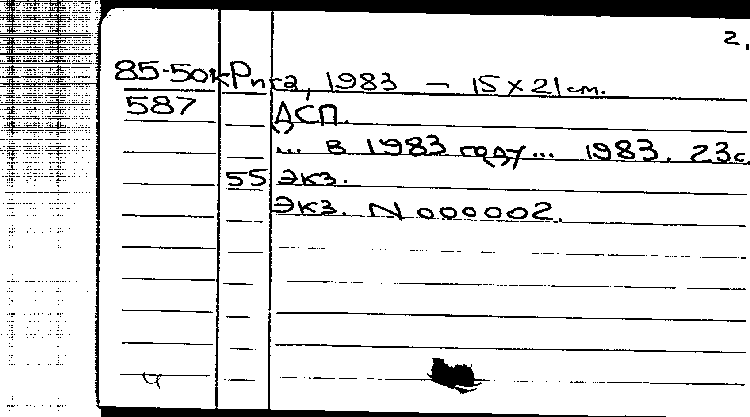 2.
85-50кРпса, 1983 — 15 x 21 см.
587 ДСП.
... в 1983 году... 1983. 23с
55 экз.
Экз. N 000002.
4